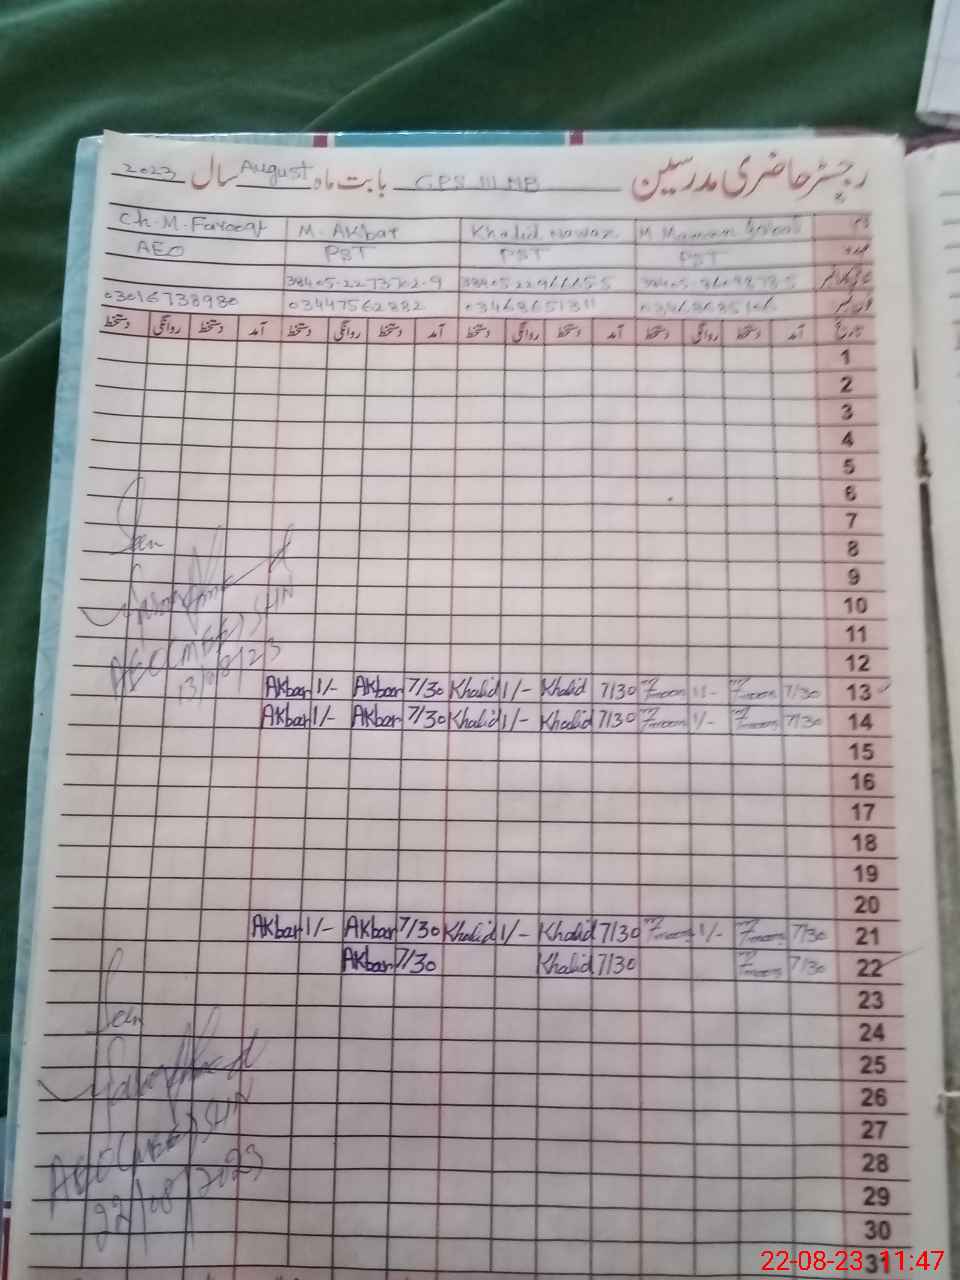 رجسٹر حاضری مدرسین GPS 111 MB بابت ماہ August سال 2023
نام M Maman Khalid Nawaz M. Akbar Ch. M. Farooq
عہدہ PST PST PST AEO
38405-2273702-9
فون نمبر 03468651311 03447562882 03016738980
تاریخ آمد دستخط روانگی دستخط آمد دستخط روانگی دستخط آمد دستخط روانگی دستخط آمد دستخط روانگی دستخط
1
2
3
4
5
6
7
8
9
10
11
12
13 7/30 1/- 7/30 Khalid 1/- Khalid 7/30 Akbar 1/- Akbar
14 7/30 1/- 7/30 Khalid 1/- Khalid 7/30 Akbar 1/- Akbar
15
16
17
18
19
20
21 7/30 1/- 7/30 Khalid 1/- Khalid 7/30 Akbar 1/- Akbar
22 7/30 7/30 Khalid 7/30 Akbar
23
24
25
26
27
28
29
30
31
Seen
AEO (MEE) SHN
13/08/23
Seen
AEO (MEE) SHN
22/08/2023
22-08-23 11:47